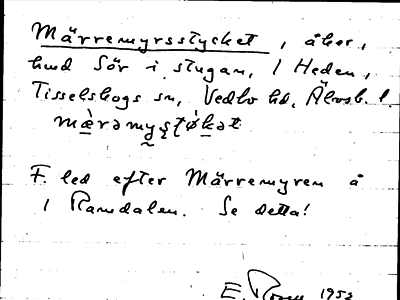 Märremyrsstycket, åker,
hmd Sör i stugan, 1 Heden,
Tisselskogs sn, Vedbo hd, Älvsb. l.
mæ̀rəmy̰ʂtøkət
F. led efter Märremyren å
1 Ramdalen. Se detta!
E. Rosen 1952